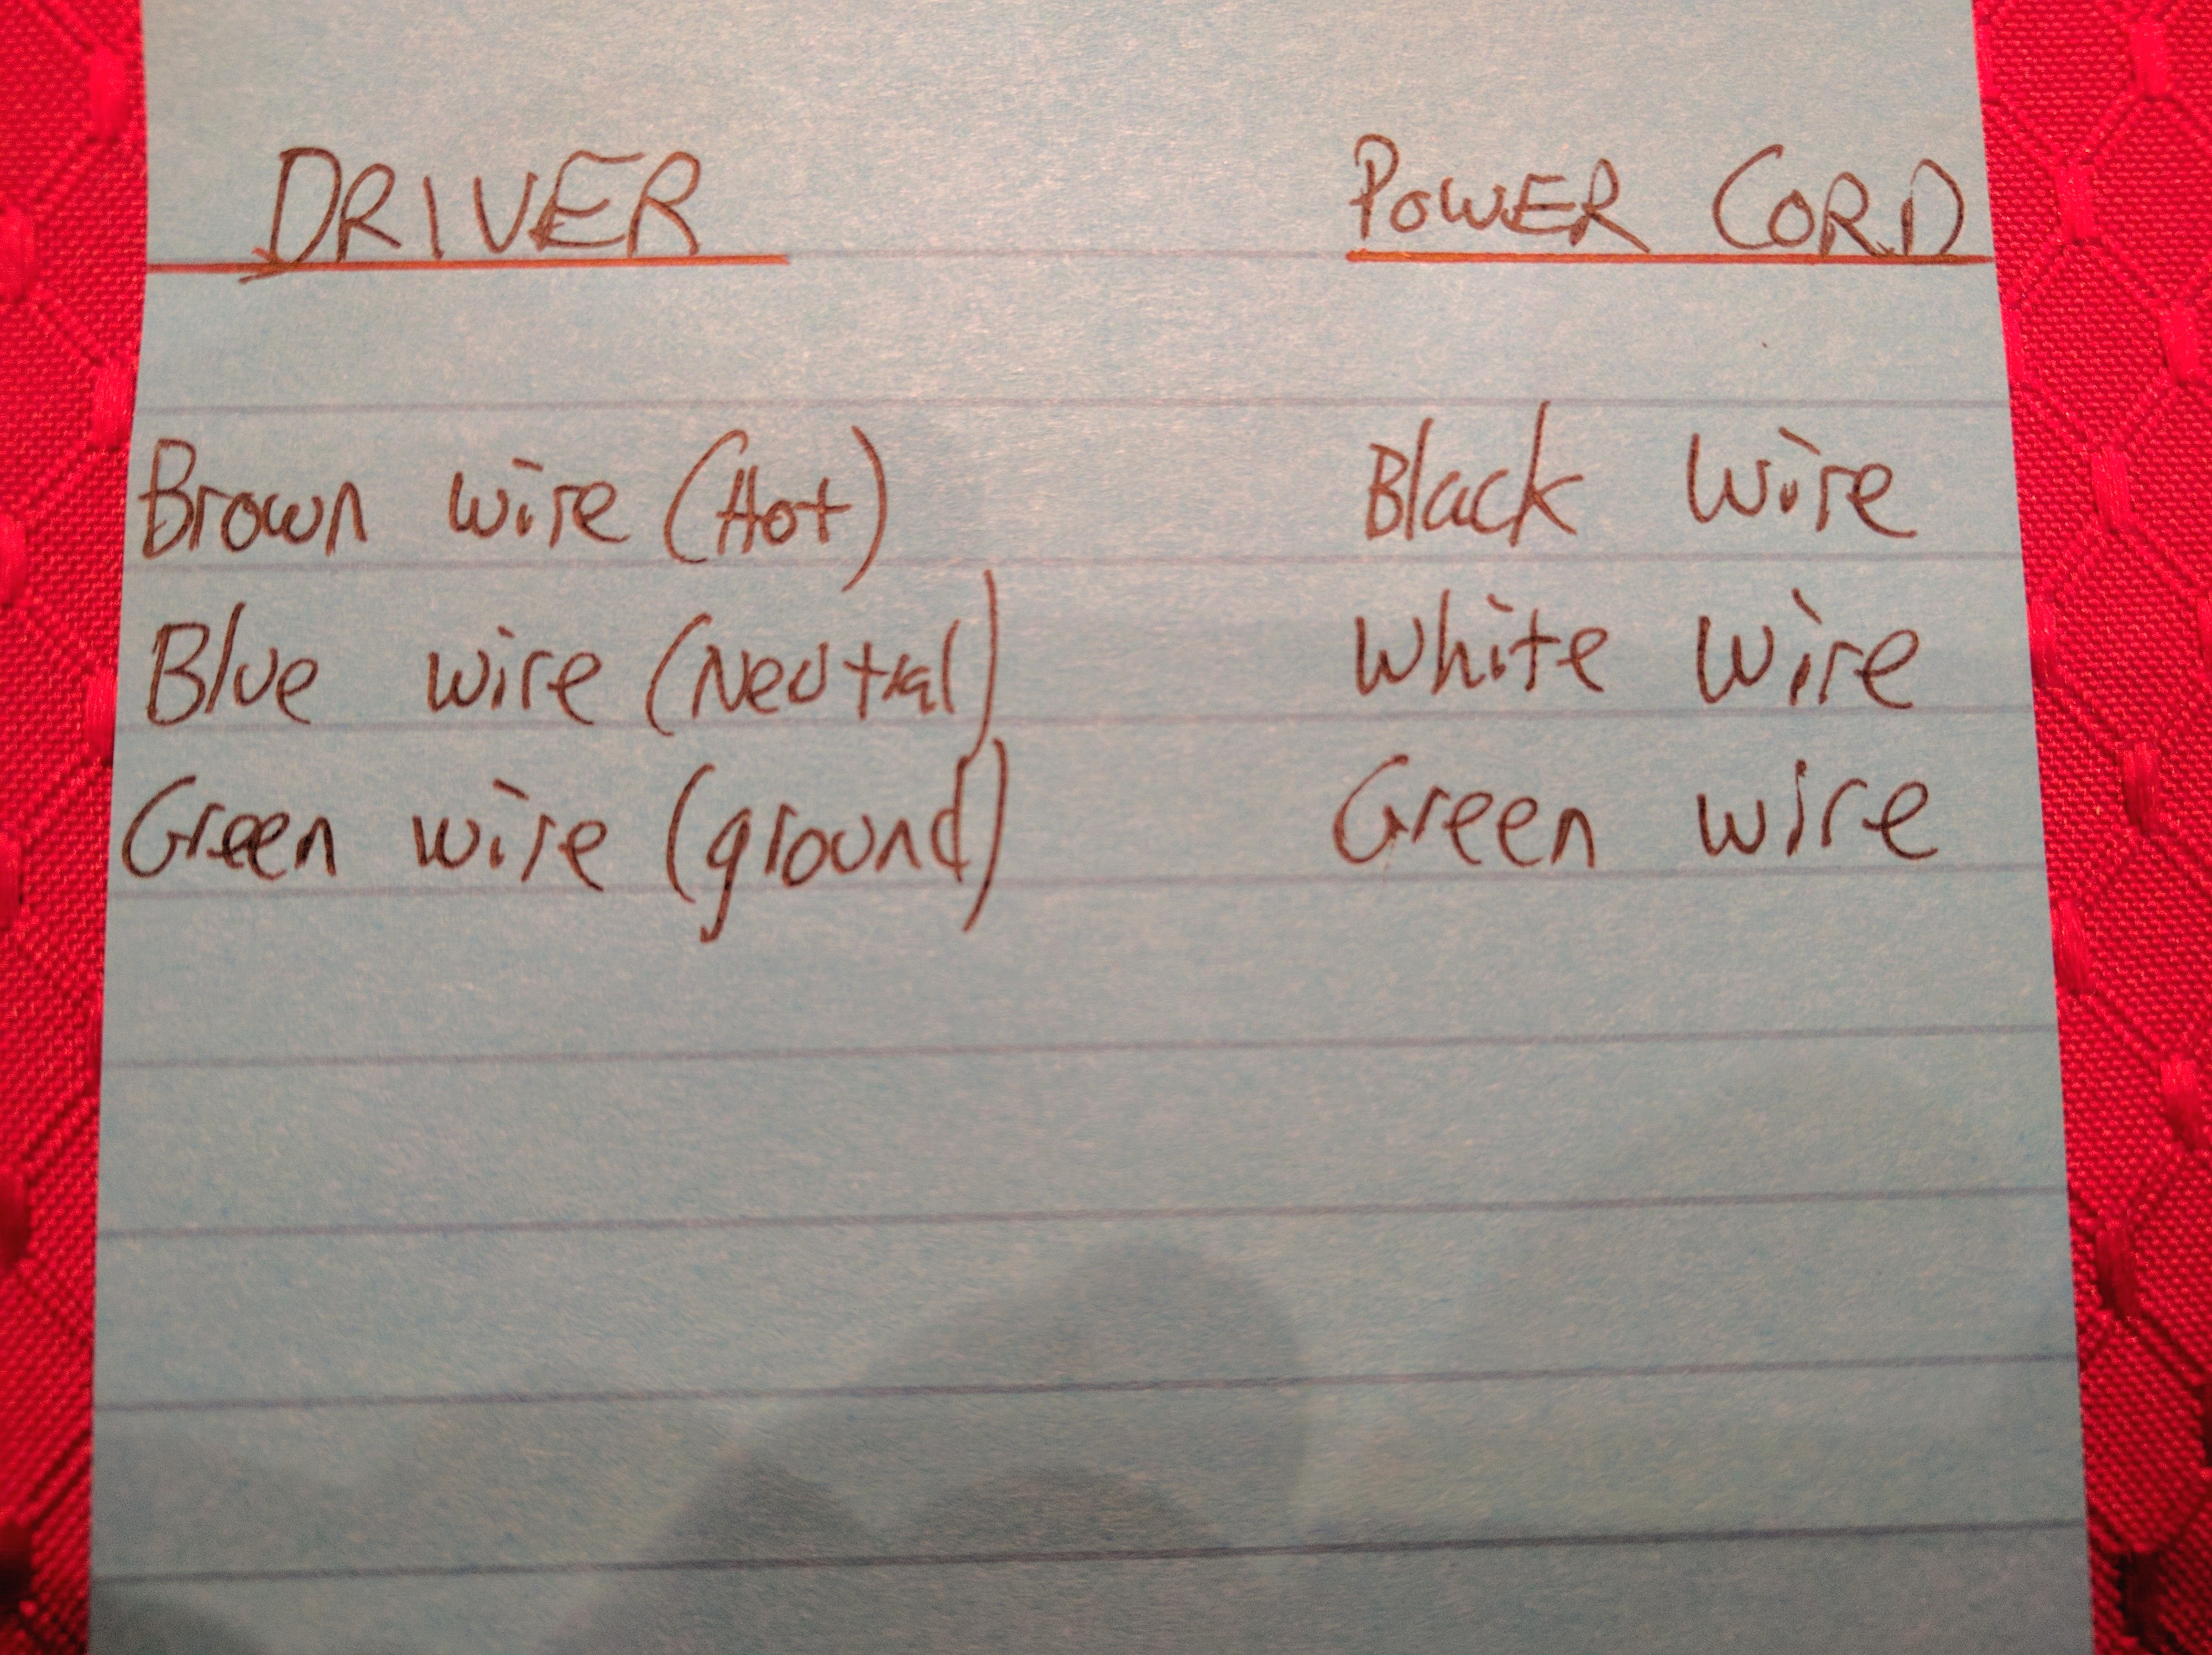 DRIVER POWER CORD
Brown wire (Hot) Black wire
Blue wire (Neutral) White wire
Green wire (ground) Green wire